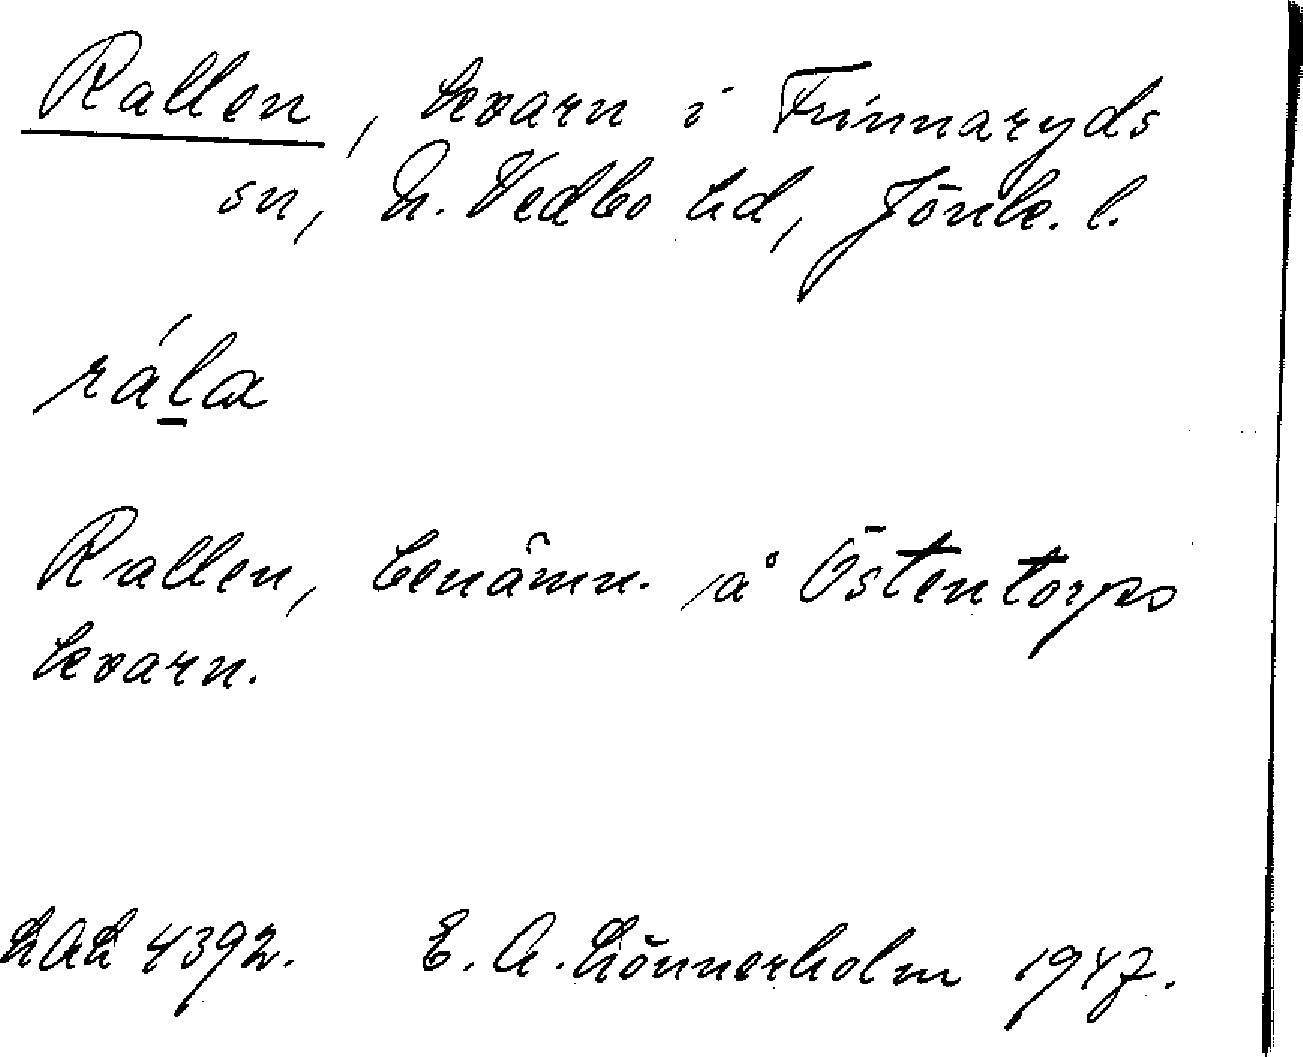 Rallen, kvarn i Frinnaryds
sn, N. Vedbo hd, Jönk. l.
rála
Rallen, benämn. på Östentorps
kvarn.
LAL 4392. E. A. Lönnerholm 1947.